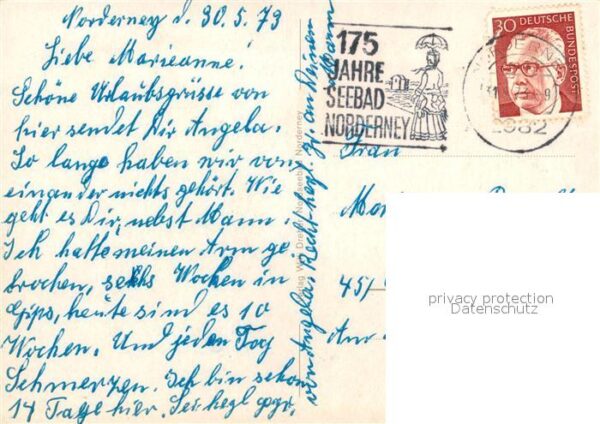 Norderney d. 30.5.73
Liebe Marieanne!
Schöne Urlaubsgrüsse von
hier sendet Dir Angela.
So lange haben wir von
einander nichts gehört. Wie
geht es Dir, nebst Mann.
Ich hatte meinen Arm ge
brochen, sechs Wochen in
Gips, heute sind es 10
Wochen. Und jeden Tag
Schmerzen. Ich bin schon
14 Tage hier. Sei hezl gegr.
von Angela. Recht hezl. Gr. an Deinen
Mann
175
JAHRE
SEEBAD
NORDERNEY
30 DEUTSCHE
BUNDESPOST
2982
Frau
45/
An
privacy protection
Datenschutz